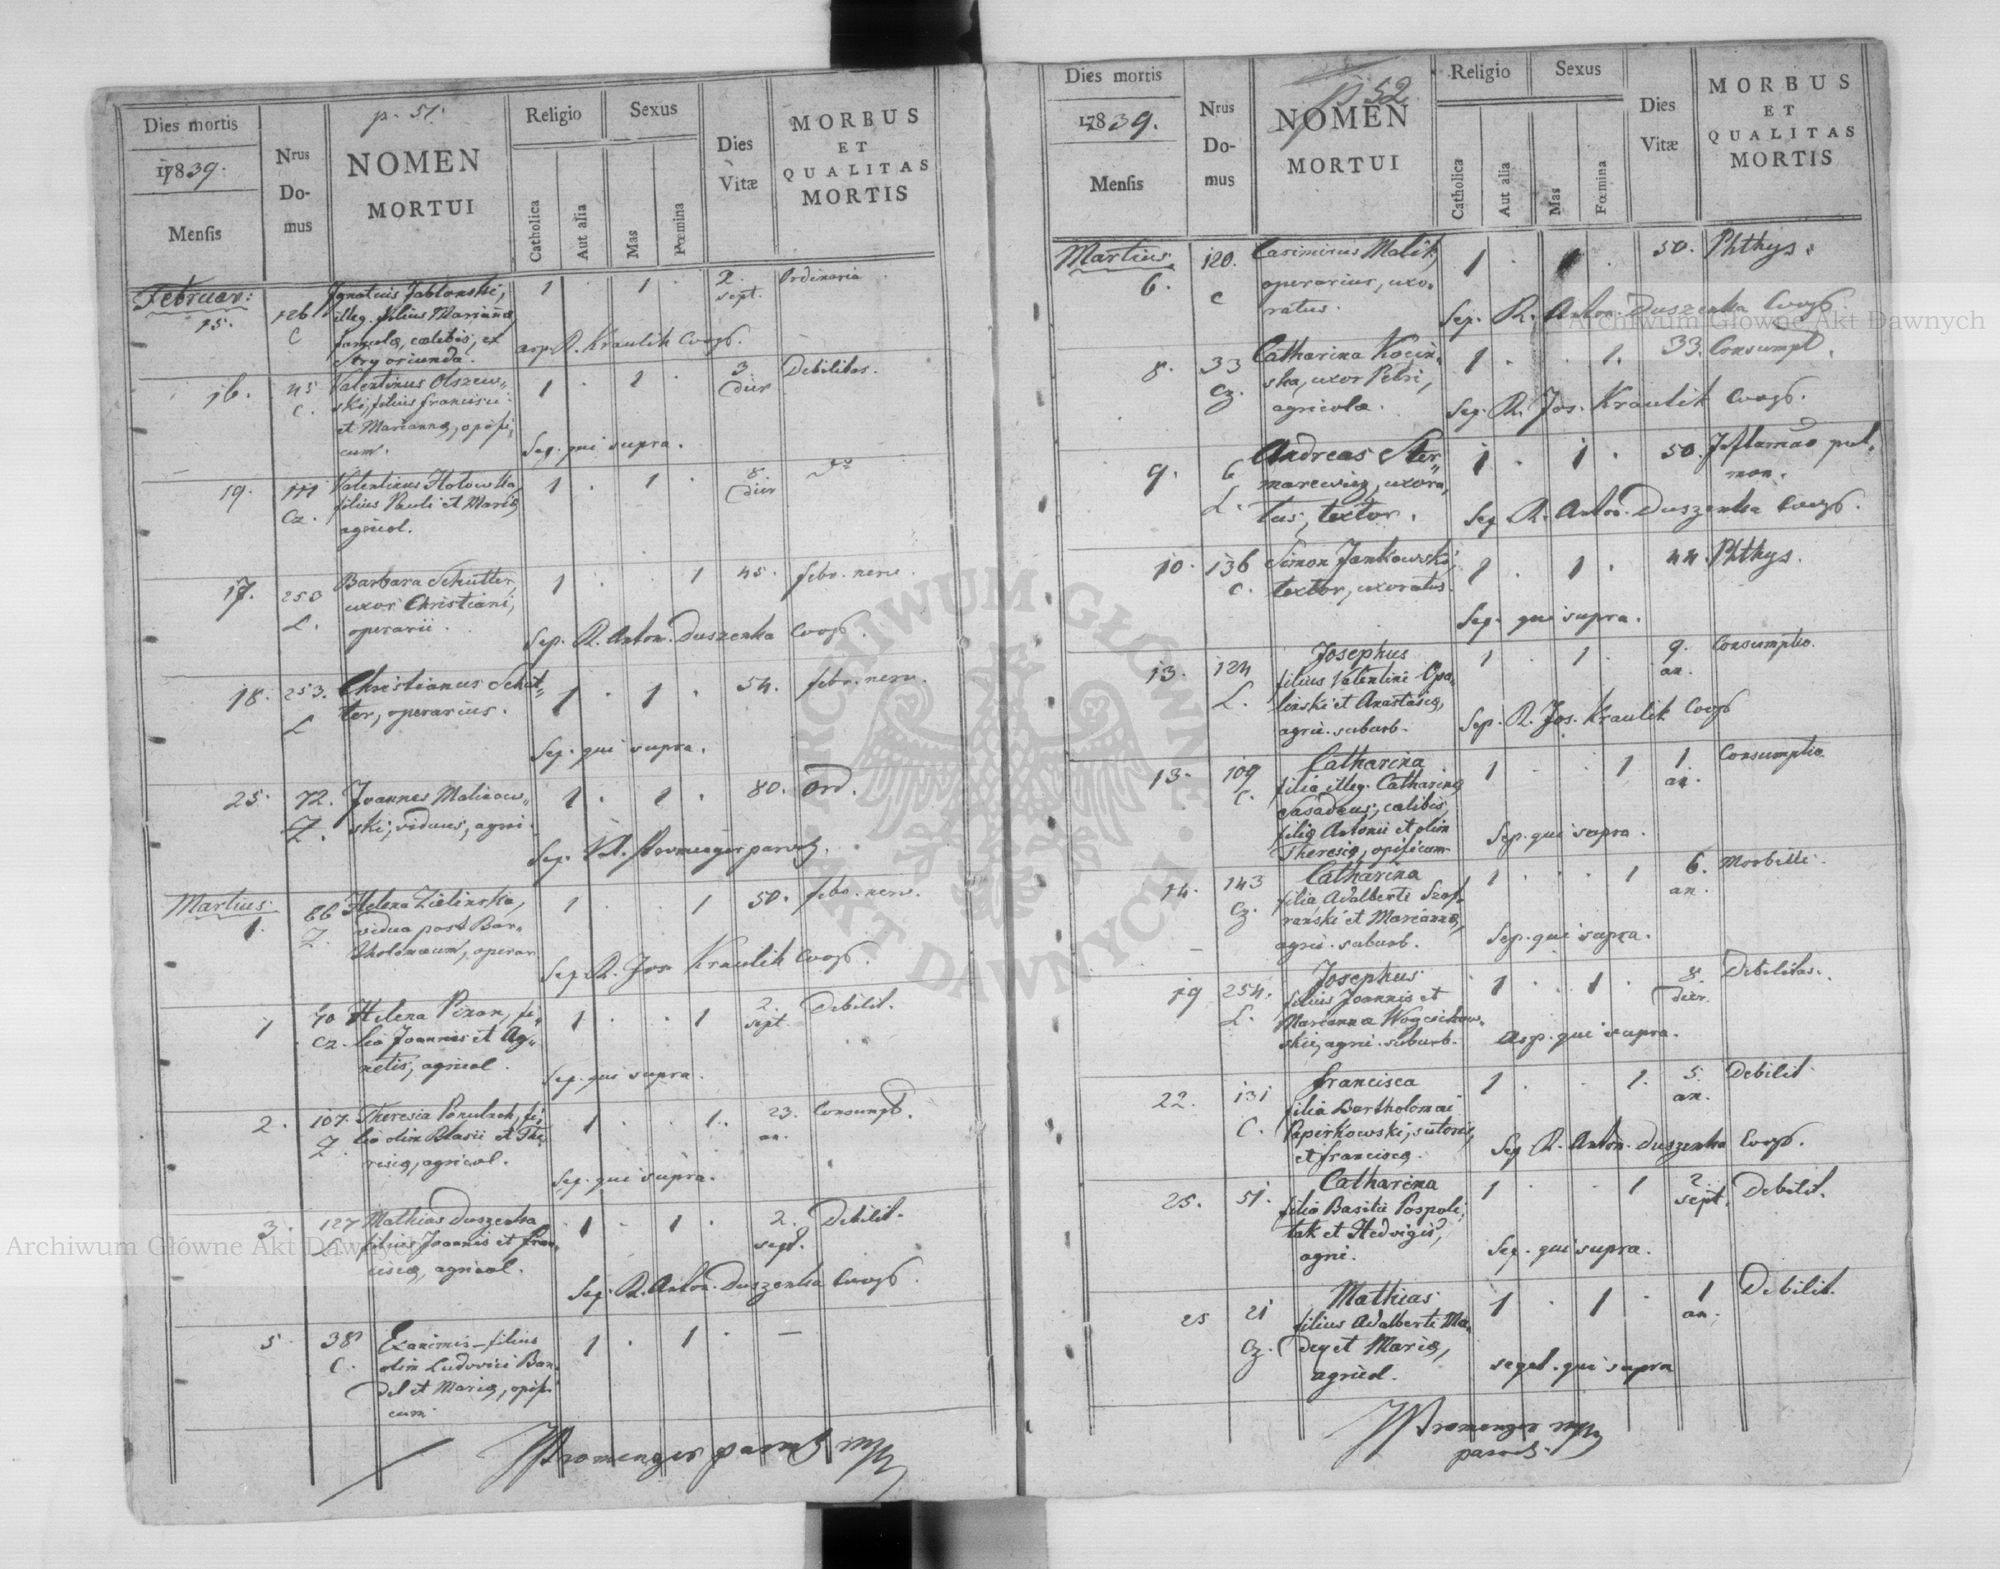 p. 51.
Dies mortis
17839.
Mensis
Nrus
Do-
mus
NOMEN
MORTUI
Religio
Catholica
Aut alia
Sexus
Mas
Fœmina
Dies
Vitæ
MORBUS
ET
QUALITAS
MORTIS
Februar:
15. 126 Ignatius Jablonski, 1 . 1 . 2. Ordinaria
C illeg. filius Mariannæ, sept.
famulæ, cælibis, ex asp. R. Kraulik Coop.
Stry oriunda.
16. 45 Valentinus Olszew- 1 . 1 3. Debilitas.
C. ski, filius Francisci dier
et Mariannæ, opifi-
cum. Sep. qui supra.
19. 111 Valentinus 1 . 1 . 8 dto
Cz. filius Pauli et Mariæ dier
agricol.
17. 253 Barbara Schutter, 1 . . 1 45. febr. nerv.
L. uxor Christiani,
operarii. Sep. R. Anton. Duszenka Coop.
18. 253. Christianus Schut- 1 . 1 . 54. febr. nerv.
L ter, operarius.
Sep. qui supra.
25. 72. Joannes Malinow- 1 . 1 . 80. ord.
Z. ski, viduus, agri.
Sep. Promenger paroch.
Martius.
1. 86 Helena Zielinska, 1 . . 1 50. febr. nerv.
Z. vidua post Bar-
tholomæum, operar. Sep. R. Jos. Kraulik Coop.
1 70 Helena Pizon, fi- 1 . . 1 2. Debilit.
Cz. lia Joannis et Ag- sept.
netis, agricol. Sep. qui supra.
2. 107. Theresia fi- 1 . . 1. 23. Consumpt.
Z. lia olim Blasii et The- an.
resiæ, agricol. Sep. qui supra.
3. 127 Mathias Duszenka 1 . 1 . 2. Debilit.
L. filius Joannis et Fran- sept.
ciscæ, agricol.
Sep. R. Anton. Duszenka Coop.
5. 38 Exanimis filius 1 . 1 . —
C. olim Ludovici Ban-
del et Mariæ, opifi-
cum.
Promenger paroch mp
p. 52.
Dies mortis
17839.
Mensis
Nrus
Do-
mus
NOMEN
MORTUI
Religio
Catholica
Aut alia
Sexus
Mas
Fœmina
Dies
Vitæ
MORBUS
ET
QUALITAS
MORTIS
Martius.
6. 120. Casimirus Malik, 1 . 1 . 50. Phthys.
C operarius, uxo-
ratus. Sep. R. Anton. Duszenka Coop.
8. 33 Catharina Kocin- 1 . . 1. 33. Consumpt.
Cz. ska, uxor Petri,
agricolæ. Sep. R. Jos. Kraulik Coop.
9. 6 Andreas Ster- 1 . 1 . 50. Inflamao pul-
L. marewicz, uxora- mon.
tus, textor. Sep R. Anton. Duszenka Coop.
10. 136 Simon Jankowski 1 . 1 . 44. Phthys.
C. textor, uxoratus.
Sep. qui supra.
13. 124 Josephus 1 . 1 . 9. Consumptio.
L. filius Valentini Opa- an.
linski et Anastasiæ,
agric. suburb. Sep. R. Jos. Kraulik Coop
13. 109 Catharina 1 . . 1 1. Consumptio
C. filia illeg. Catharinæ an.
Sasadeus, cælibis,
filiæ Antonii et olim Sep. qui supra.
Theresiæ, opificum
14. 143 Catharina 1 . . 1 6. Morbilli.
Cz. filia Adalberti Szaf- an.
ranski et Mariannæ,
agric. suburb. Sep. qui supra.
19 254. Josephus 1 . 1 . 8. Debilitas.
L. filius Joannis et dier.
Marianna Woycichow-
skie, agric. suburb. Asp. qui supra.
22. 131 Francisca 1 . . 1. 5. Debilit.
C. filia Bartholomæi an.
Papirkowski, sutoris,
et Franciscæ. Sep R. Anton. Duszenka Coop.
25. 51. Catharina 1 . . 1 2. Debilit.
filia Basilii Pospoli- sept.
tak et Hedvigis,
agric. Sep. qui supra.
25 21 Mathias 1 . 1 . 1 Debilit.
Cz. filius Adalberti Ma- an.
dey et Mariæ,
agricol. sepel. qui supra
Promenger mp
paroch.
Archiwum Główne Akt Dawnych
Archiwum Główne Akt Dawnych
ARCHIWUM GŁÓWNE · AKT DAWNYCH ·